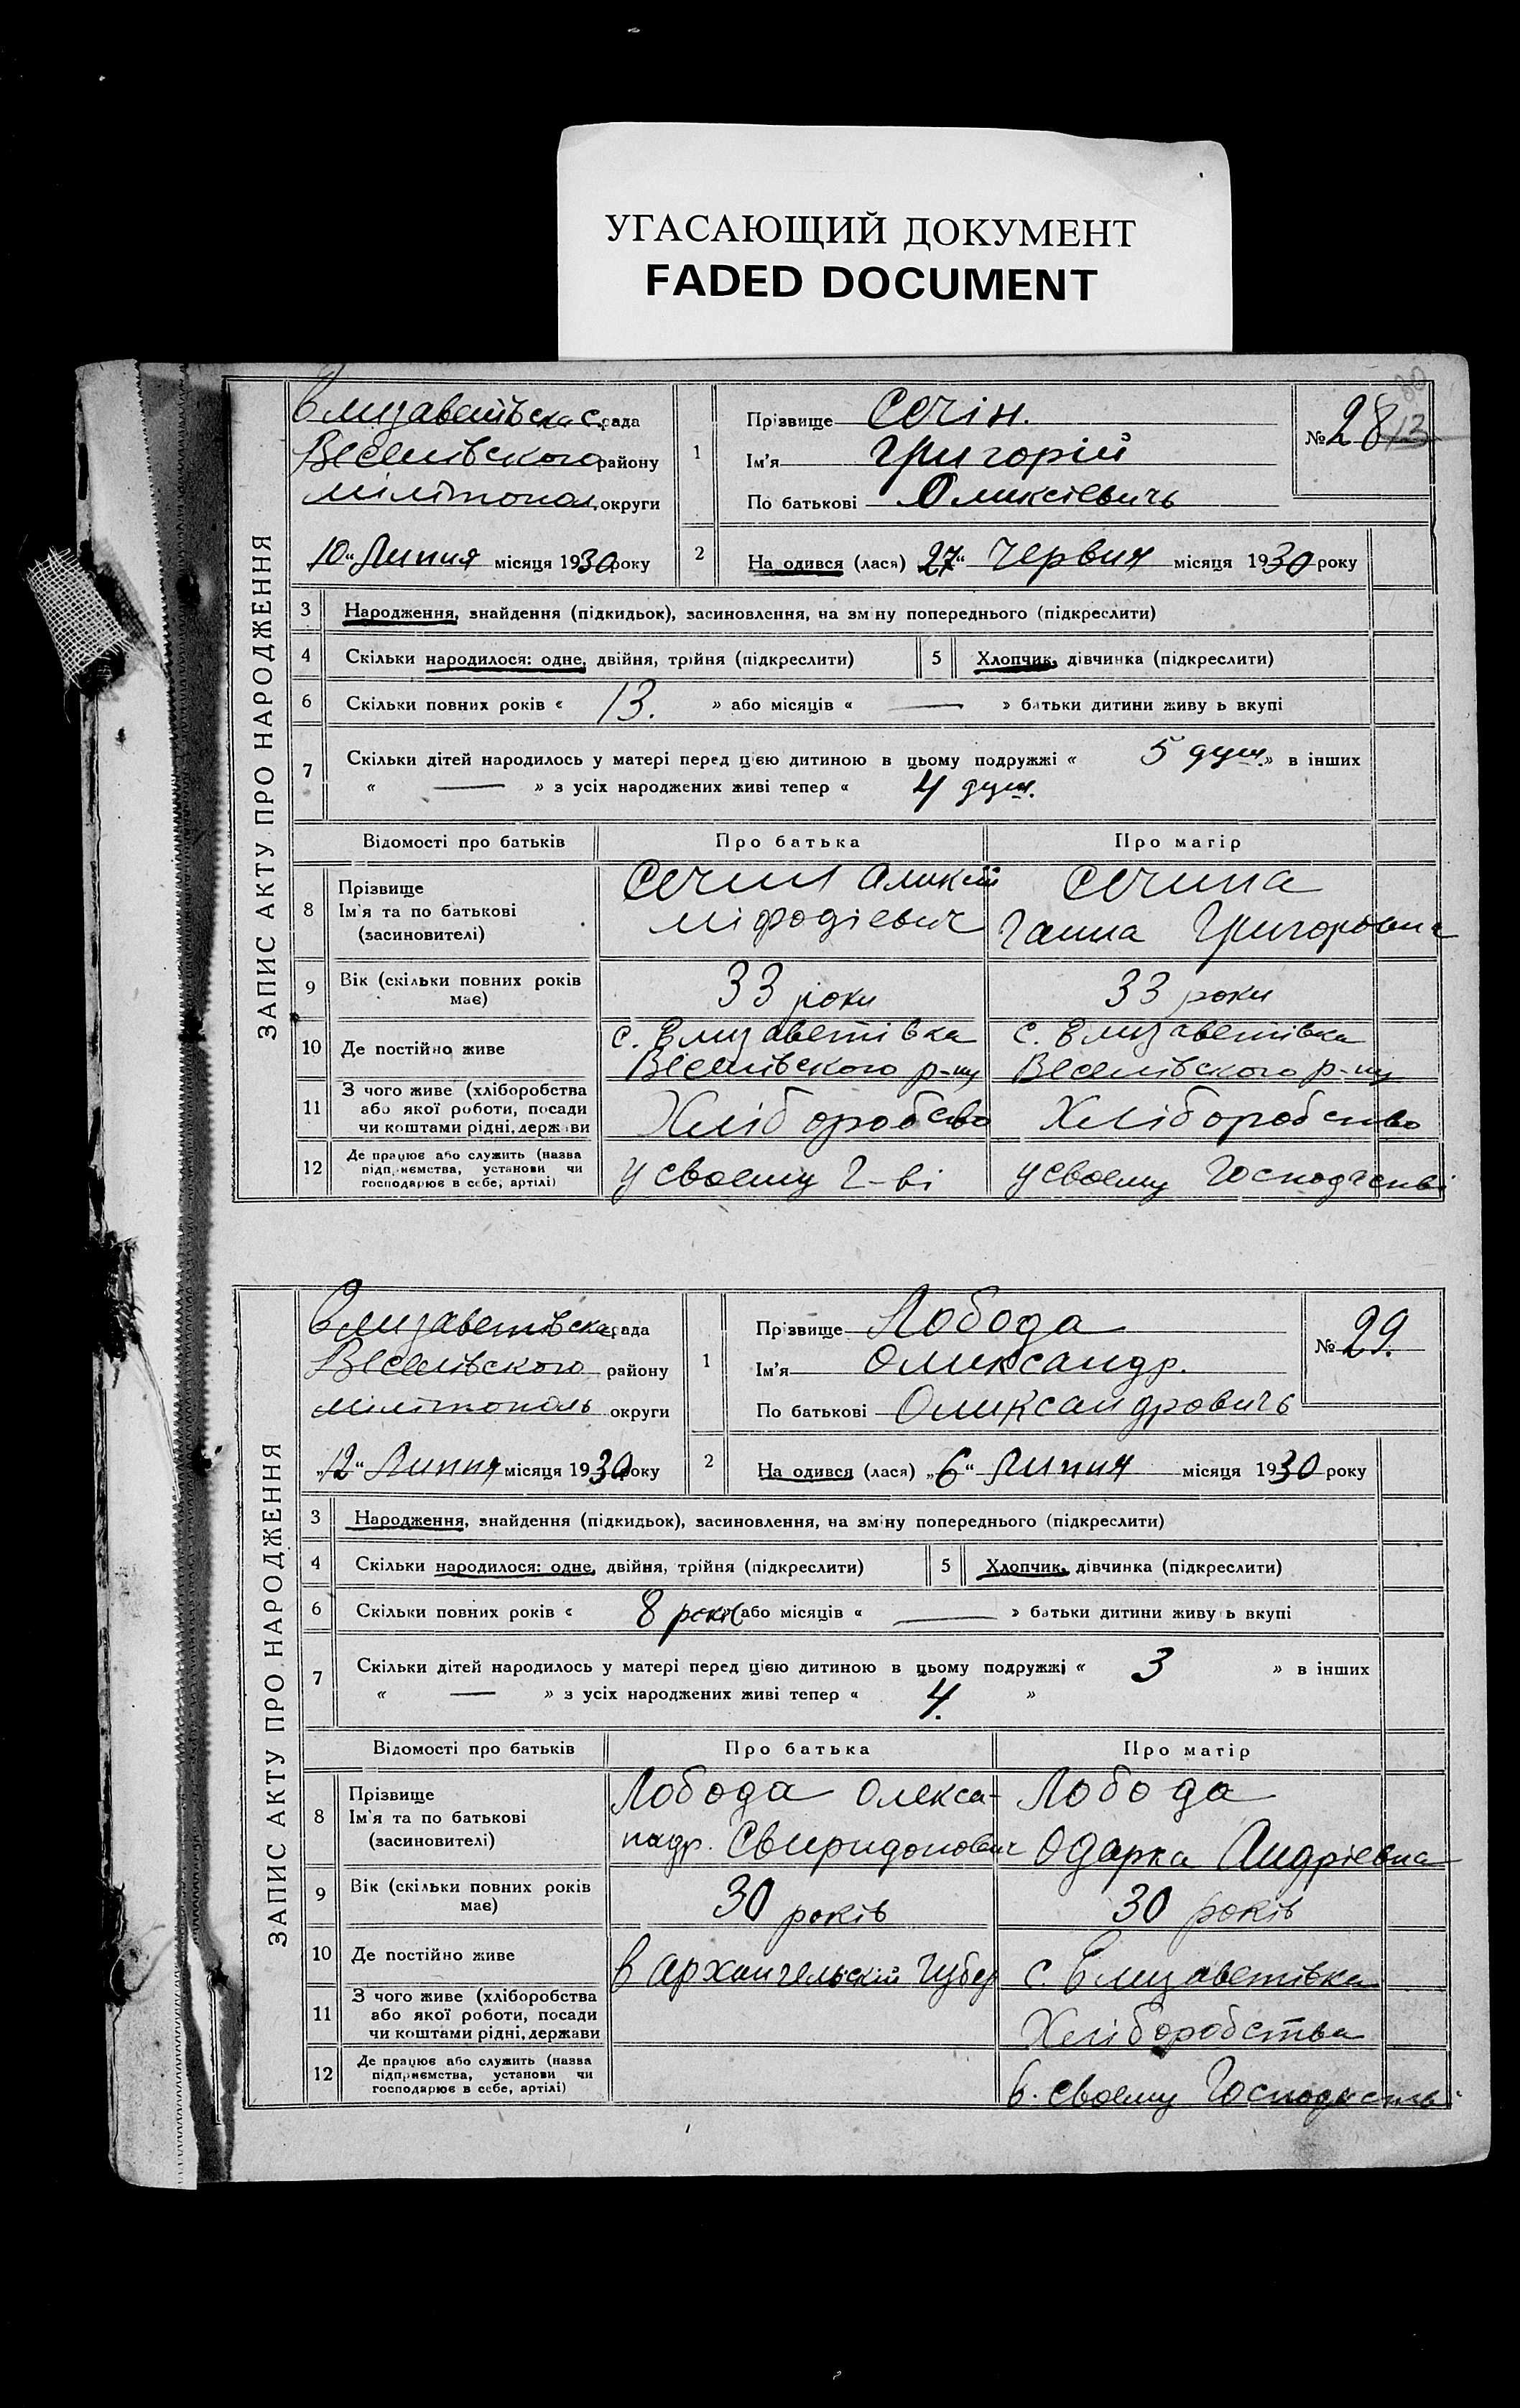 УГАСАЮЩИЙ ДОКУМЕНТ
FADED DOCUMENT
ЗАПИС АКТУ ПРО НАРОДЖЕННЯ
Єлизаветівська с. рада
Веселівського району
Мілітопол. округи
10 " Липня місяця 1930 року
1
Прізвище Сечін.
Ім'я Григорій
По батькові Оликсіевичь
№ 28
13
2
На одився (лася) 27 " Червня місяця 1930 року
3 Народження, знайдення (підкидьок), засиновлення, на зм ну попереднього (підкреслити)
4 Скільки народилося: одне, двійня, трійня (підкреслити) 5 Хлопчик, дівчинка (підкреслити)
6 Скільки повних років « 13. » або місяців « — » батьки дитини живу ь вкупі
7 Скільки дітей народилось у матері перед цією дитиною в цьому подружжі « 5 душ. » в інших
« — » з усіх народжених живі тепер « 4 душ.
Відомості про батьків Про батька Про матір
8 Прізвище
Ім'я та по батькові
(засновителі)
Сечин Аликсій
Міфодіевич
Сечина
Ганна Григоровна
9 Вік (скільки повних років
має)
33 роки
33 роки
10 Де постійно живе
с. Єлизаветівка
Веселівського р-ну
с. Єлизаветівка
Веселівського р-ну
11 З чого живе (хліборобства
або якої роботи, посади
чи коштами рідні, держави
Хліборобсво
Хліборобство
12 Де працює або служить (назва
підприємства, установи чи
господарює в себе, артілі)
у своему г-ві
у своему Господарстві
ЗАПИС АКТУ ПРО НАРОДЖЕННЯ
Єлизаветівська рада
Веселівського району
Мілітополь округи
„12" Липня місяця 1930 року
1
Прізвище Лобода
Ім'я Оликсандр.
По батькові Оликсандровичь
№ 29.
2
На одився (лася) „6" Липня місяця 1930 року
3 Народження, знайдення (підкидьок), засиновлення, на зміну попереднього (підкреслити)
4 Скільки народилося: одне, двійня, трійня (підкреслити) 5 Хлопчик, дівчинка (підкреслити)
6 Скільки повних років « 8 років або місяців « — » батьки дитини живу ь вкупі
7 Скільки дітей народилось у матері перед цією дитиною в цьому подружжі « 3 » в інших
« — » з усіх народжених живі тепер « 4. »
Відомості про батьків Про батька Про матір
8 Прізвище
Ім'я та по батькові
(засиновителі)
Лобода Олекса-
надр. Свиридонович
Лобода
Одарка Андріевна
9 Вік (скільки повних років
має)
30 років
30 років
10 Де постійно живе
в Архангельскій Губер
с. Єлизаветівка
11 З чого живе (хліборобства
або якої роботи, посади
чи коштами рідні, держави
Хліборобства
12 Де працює або служить (назва
підприємства, установи чи
господарює в себе, артілі)
в. своему Господарстві